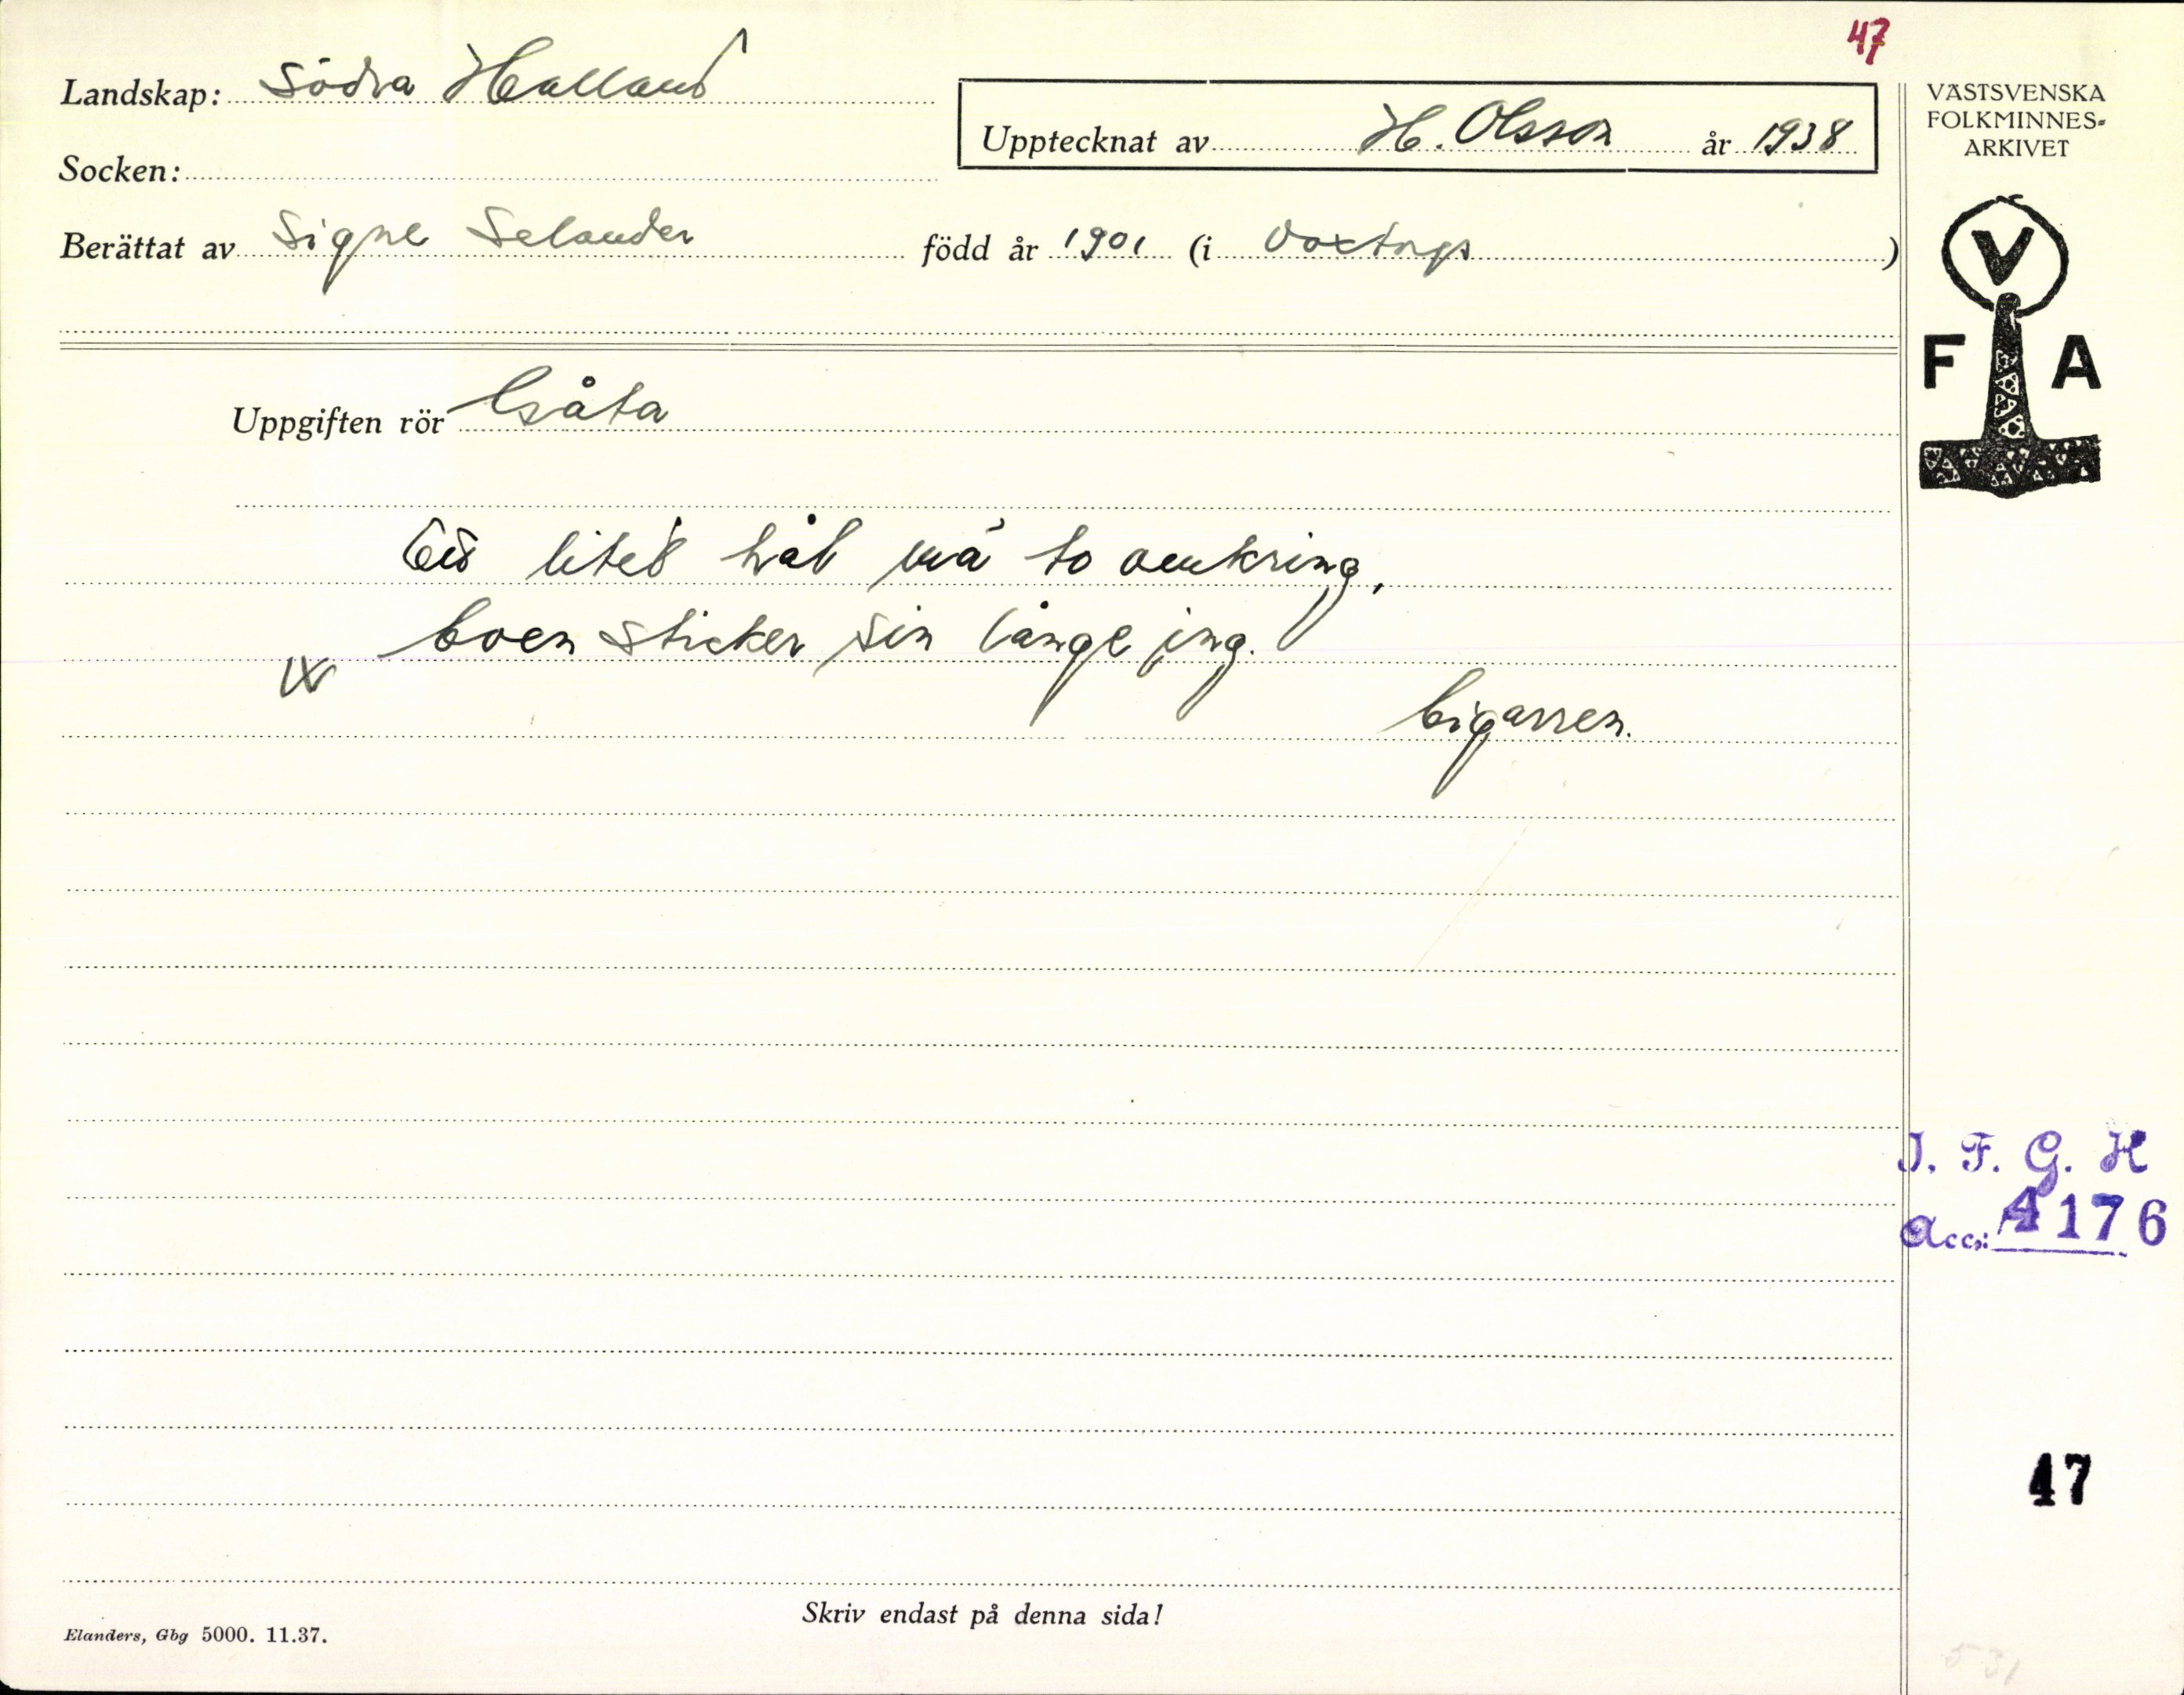 47
Landskap: Södra Halland
Upptecknat av H. Olsson år 1938
VÄSTSVENSKA
FOLKMINNES-
ARKIVET
Socken:
Berättat av Signe Selander född år 1901 (i Voxtorp)
V
F A
Uppgiften rör Gåta
Ed lited hål má to omkring,
boen sticker sin långe ing.
Cigarren.
I. F. G. H
Acc: 4176
47
Skriv endast på denna sida!
Elanders, Gbg 5000. 11.37.
531